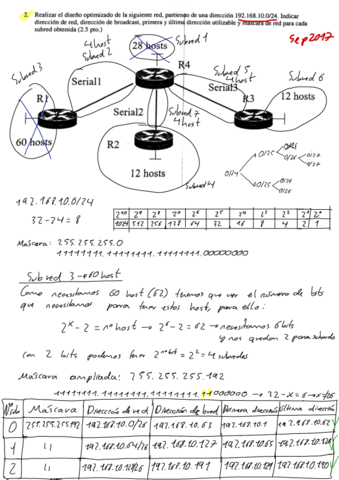 2. Realizar el diseño optimizado de la siguiente red, partiendo de una dirección 192.168.10.0/24. Indicar
dirección de red, dirección de broadcast, primera y última dirección utilizable y máscara de red para cada
subred obtenida (2.5 pto.)
Sep 2017
4 host
Subred 2
28 hosts
Subred 1
Subred 3
Serial1
R4
Subred 5
4 host
Subred 6
R1
Serial2
Subred 7
4 host
Serial3
R3
12 hosts
60 hosts
R2
12 hosts
Subred 4
0/24
0/25
0/25
0/26
0/26
0/26
0/27
0/27
192.168.10.0/24
32-24=8
2¹⁰ 2⁹ 2⁸ 2⁷ 2⁶ 2⁵ 2⁴ 2³ 2² 2¹ 2⁰
1024 512 256 128 64 32 16 8 4 2 1
Máscara: 255.255.255.0
11111111.11111111.11111111.00000000
Subred 3 → 60 host
Como necesitamos 60 host (62) tenemos que ver el número de bits
que necesitamos para tener estos host, para ello:
2ˣ-2 = nº host → 2⁶-2 = 62 → necesitamos 6 bits
y nos quedan 2 para subred
con 2 bits podemos tener 2^nº bit = 2² = 4 subredes
Máscara ampliada: 255.255.255.192
11111111.11111111.11111111.11000000 → 32-x=6→/26
Nº sub Máscara Dirección de red Dirección de broad Primera dirección Última dirección
0 255.255.255.192 192.168.10.0/26 192.168.10.63 192.168.10.1 192.168.10.62
1 " 192.168.10.64/26 192.168.10.127 192.168.10.65 192.168.10.126
2 " 192.168.10.128/26 192.168.10.191 192.168.10.129 192.168.10.190